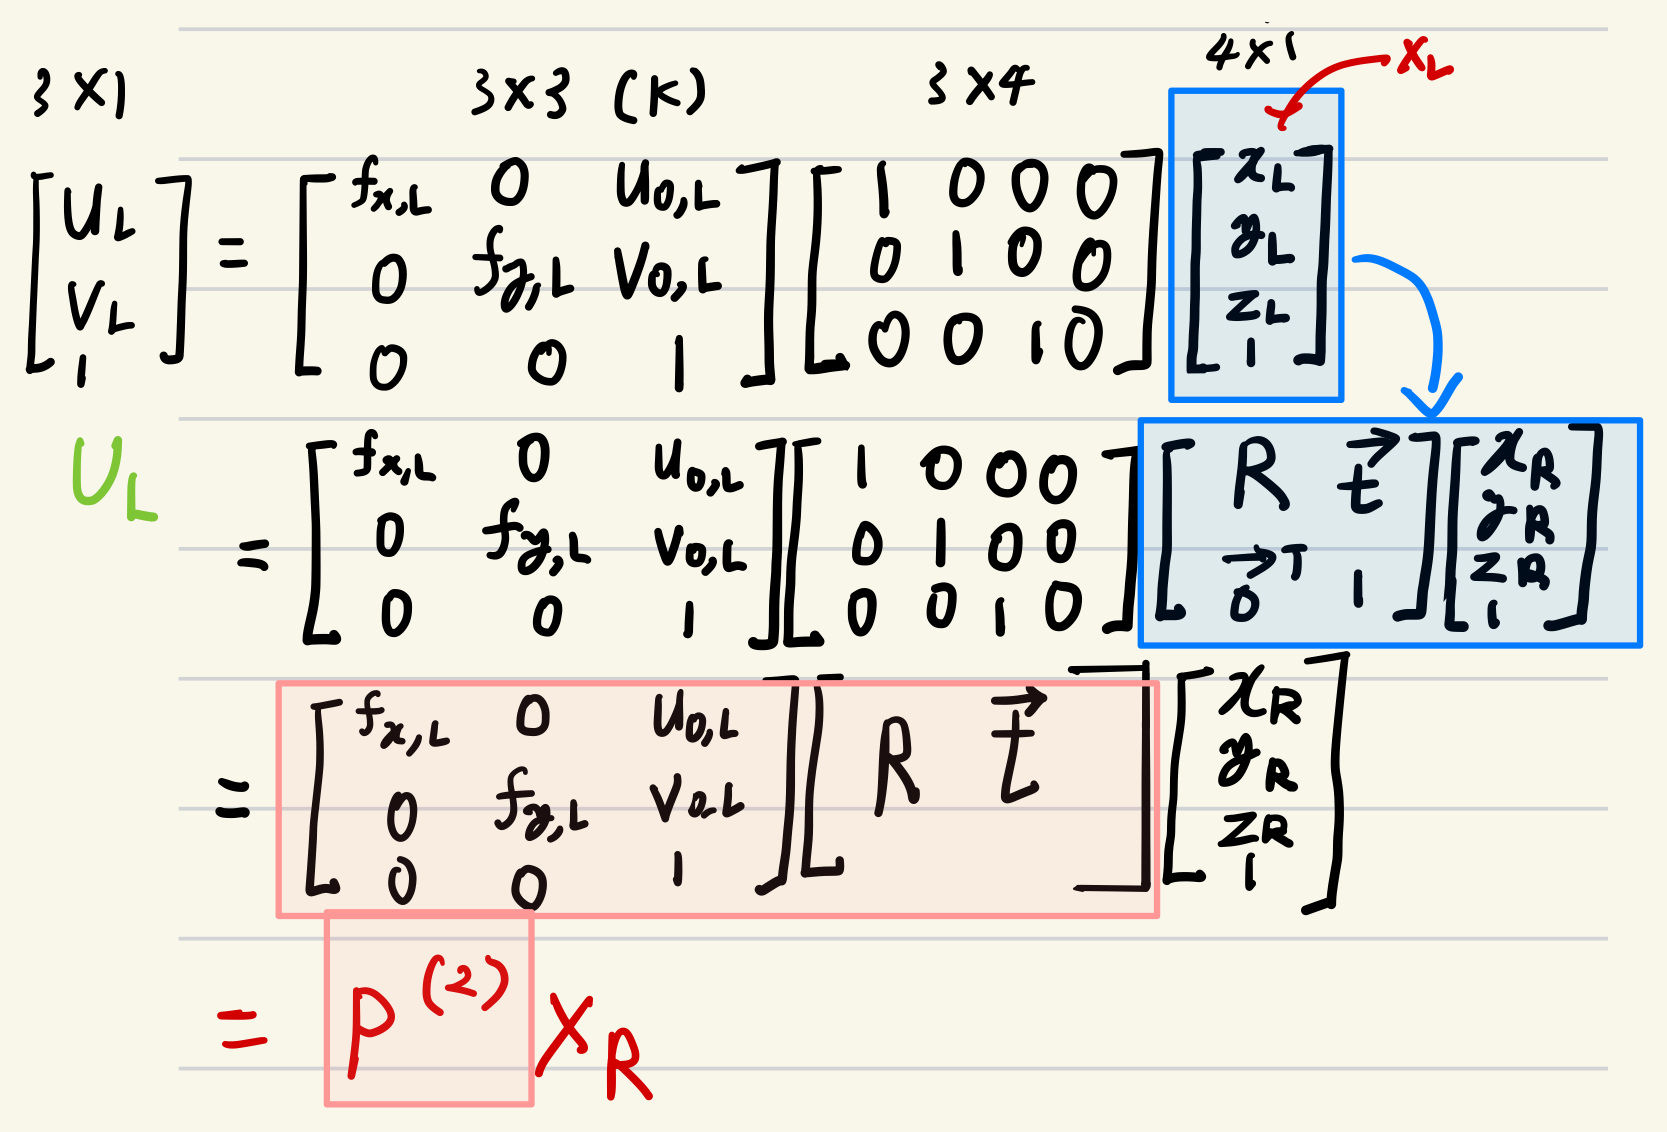 3×1 3×3 (K) 3×4 4×1 X_L
[U_L V_L 1] = [f_{x,L} 0 U_{0,L}; 0 f_{y,L} V_{0,L}; 0 0 1] [1 0 0 0; 0 1 0 0; 0 0 1 0] [x_L y_L z_L 1]
U_L = [f_{x,L} 0 U_{0,L}; 0 f_{y,L} V_{0,L}; 0 0 1] [1 0 0 0; 0 1 0 0; 0 0 1 0] [R \vec{t}; \vec{0}^T 1] [x_R y_R z_R 1]
= [f_{x,L} 0 U_{0,L}; 0 f_{y,L} V_{0,L}; 0 0 1] [R \vec{t}] [x_R y_R z_R 1]
= P^{(2)} X_R